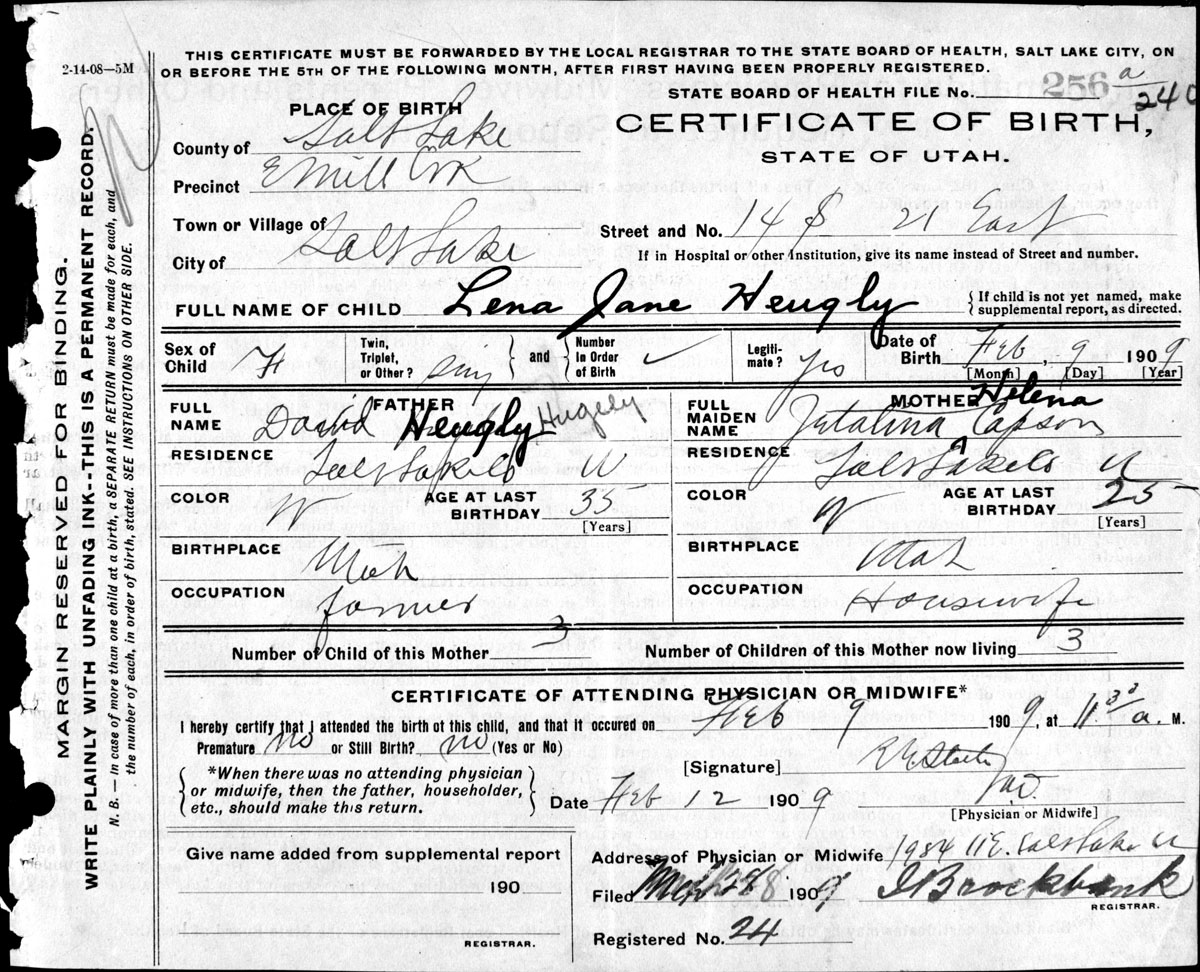 THIS CERTIFICATE MUST BE FORWARDED BY THE LOCAL REGISTRAR TO THE STATE BOARD OF HEALTH, SALT LAKE CITY, ON
OR BEFORE THE 5TH OF THE FOLLOWING MONTH, AFTER FIRST HAVING BEEN PROPERLY REGISTERED.
2-14-08—5M
STATE BOARD OF HEALTH FILE No. 256 a/240
CERTIFICATE OF BIRTH,
STATE OF UTAH.
PLACE OF BIRTH
County of Salt Lake
Precinct E Mill Crk
Town or Village of
City of Salt Lake
Street and No. 14 S 21 East
If in Hospital or other Institution, give its name instead of Street and number.
FULL NAME OF CHILD Lena Jane Heugly
{If child is not yet named, make
supplemental report, as directed.
Sex of Child F
Twin, Triplet, or Other? and Number in Order of Birth ✓
Legiti-mate? yes
Date of Birth Feb, 9 1909
[Month] [Day] [Year]
FATHER
FULL NAME David Heugly Hugely
RESIDENCE Salt Lake Co U
COLOR W AGE AT LAST BIRTHDAY 35
[Years]
BIRTHPLACE Utah
OCCUPATION farmer
MOTHER
FULL MAIDEN NAME Helena Capson
RESIDENCE Salt Lake Co U
COLOR W AGE AT LAST BIRTHDAY 25
[Years]
BIRTHPLACE Utah
OCCUPATION Housewife
Number of Child of this Mother 3
Number of Children of this Mother now living 3
CERTIFICATE OF ATTENDING PHYSICIAN OR MIDWIFE*
I hereby certify that I attended the birth of this child, and that it occurred on Feb 9 1909, at 11 30 a. M.
Premature no or Still Birth? no (Yes or No)
{*When there was no attending physician
or midwife, then the father, householder,
etc., should make this return.}
[Signature] M.D.
[Physician or Midwife]
Date Feb 12 1909
Give name added from supplemental report
190
REGISTRAR.
Address of Physician or Midwife 1984 11 E. Salt Lake U
Filed 1909, Brockbank
REGISTRAR.
Registered No. 24
MARGIN RESERVED FOR BINDING.
WRITE PLAINLY WITH UNFADING INK--THIS IS A PERMANENT RECORD.
N. B. — In case of more than one child at a birth, a SEPARATE RETURN must be made for each, and
the number of each, in order of birth, stated. SEE INSTRUCTIONS ON OTHER SIDE.